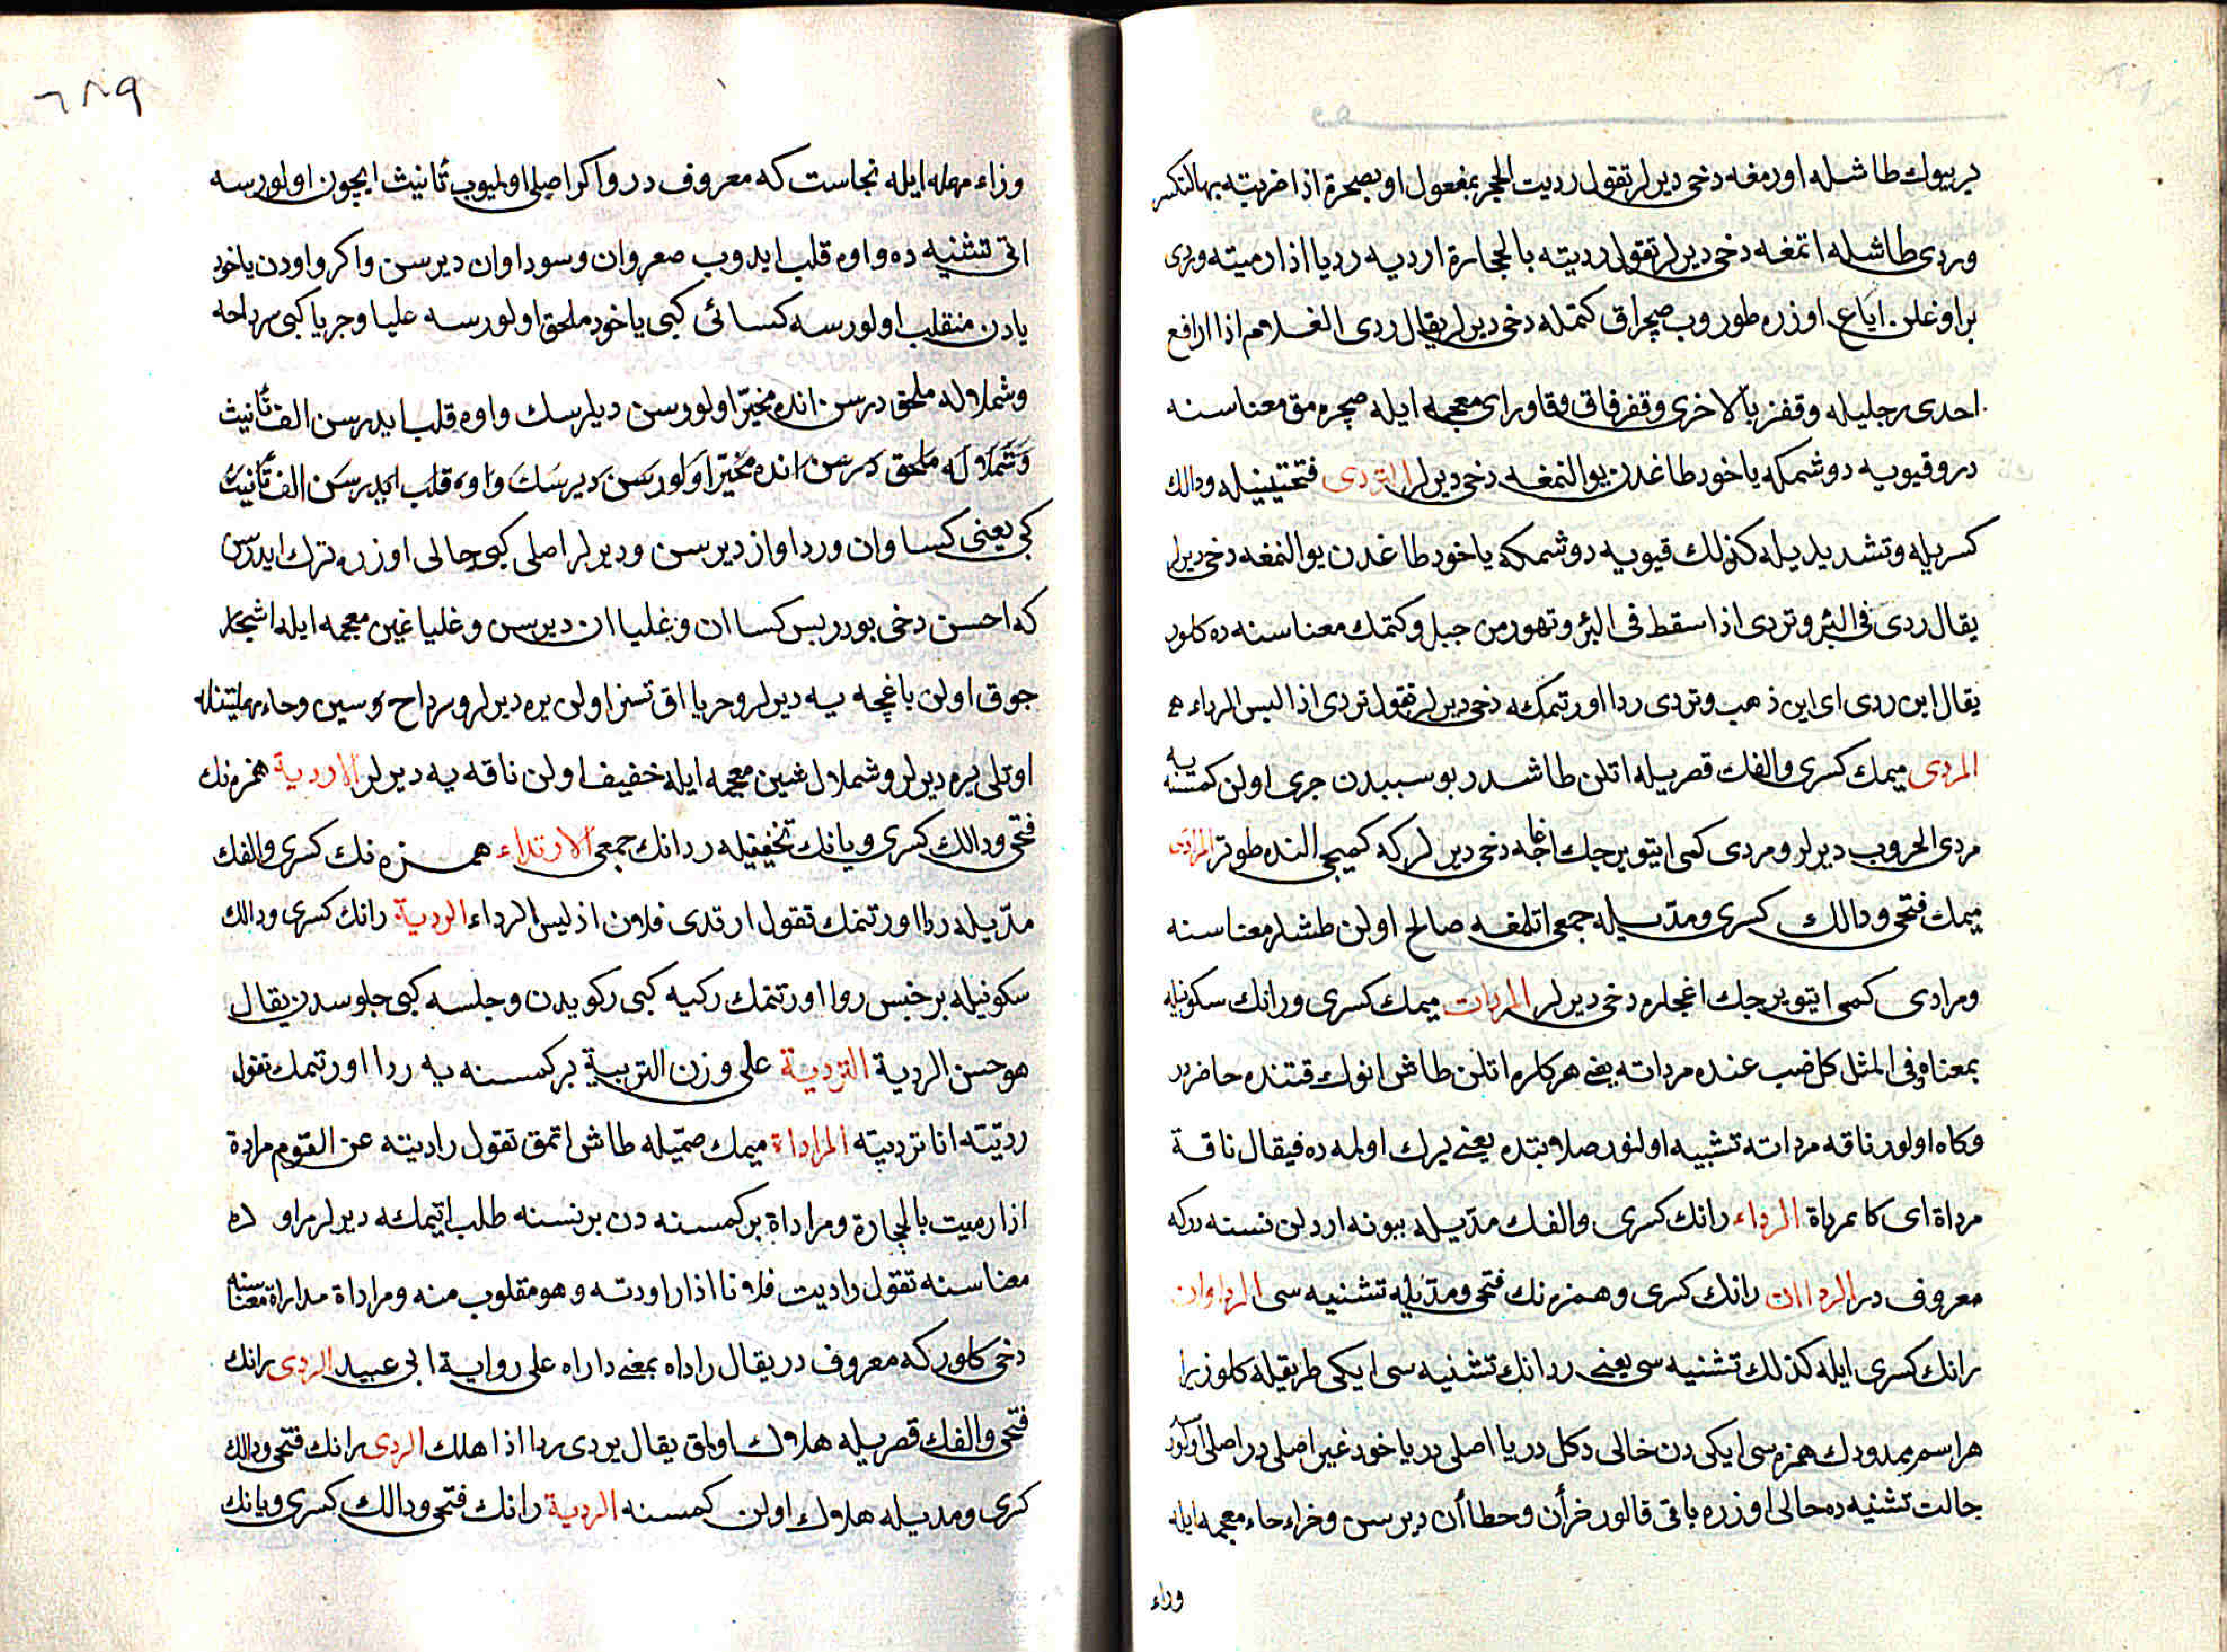 بر بيوك طاشله اورمغه دخى ديرلر تقول رديت الحجر بمفعول او بصخرة اذا ضربته بها لتكسر
وردى طاشله اتمغه دخى ديرلر تقول رديته بالحجارة ارديه رديا اذا رميته وردى
بر اوغلن اياغ اوزره طوروب صچراق كتمله دخى ديرلر يقال ردى الغلام اذا ارافع
احدى رجليله وقفز بالاخرى وقفز قاف وقا وراى معجمه ايله صچره مق معناسنه
در وقيويه دوشمكه ياخود طاغدن يوالنمغه دخى ديرلر التردى فتحتينيله ودالك
كسريله وتشديديله كذلك قيويه دوشمكه ياخود طاغدن يوالنمغه دخى ديرلر
يقال ردى فى البئر وتردى اذا سقط فى البئر وتهور من جبل وكتمك معناسنه ده كلور
يقال اين ردى اى اين ذهب وتردى ردا اورتيمكه دخى ديرلر تقول تردى اذا لبس الرداء
المردى ميمك كسرى والفك قصريله اتلن طاشدر بو سببدن جرى اولن كمسنه يه
مردى الحروب ديرلر ومردى كمى ايتويرجك اغاجه دخى ديرلر كه كميجى النده طوتر المرادى
ميمك فتحى ودالك كسرى ومدّيله جمعى اتلمغه صالح اولن طشلر معناسنه
ومرادى كمى ايتويرجك اغجلره دخى ديرلر المردات ميمك كسرى ورانك سكونيله
بمعناه وفى المثل كل ضب عنده مرداته يعنى هر كلره اتلن طاش انوك قتنده حاضردر
وكاه اولور ناقه مرداته تشبيه اولنور صلابتده يعنى يرك اولمه ده فيقال ناقة
مرداة اى كا مرداة الرداء رانك كسرى والفك مدّيله بيونه اردلن نسنه دركه
معروف در الرداان رانك كسرى وهمزه نك فتحى ومدّيله تشنيه سى الرداوان
رانك كسرى ايله كذلك تشنيه سى يعنى ردانك تشنيه سى ايكى طريقيله كلور زيرا
هر اسم ممدودك همزه سى ايكى دن خالى دكل در يا اصلى در ياخود غير اصلى در اصلى اولور
حالت تشنيه ده حالى اوزره باقى قالور خرأن وحطاأن ديرسن وخراء حاء معجمه ايله
وراء
٦٨٩
وزاء مهمله ايله نجاست كه معروف در واكر اصلى اولميوب تأنيث ايچون اولورسه
انى تشنيه ده واوه قلب ايدوب صعروان وسوداوان ديرسن واكر واودن ياخود
يادن منقلب اولورسه كسائى كبى ياخود ملحق اولورسه عليا وجريا كبى سرداحه
وشملال له ملحق درسن انده مخيّر اولورسن ديلرسك واوه قلب ايدرسن الف تأنيث
وشملال له ملحق درسن انده مخيّر اولورسن ديرسك واوه قلب ايدرسن الف تأنيث
كى يعنى كساوان ورداوان ديرسن وديرلر اصلى كبى حالى اوزره ترك ايدرسن
كه احسن دخى بودر بس كساان وغلياان ديرسن وغليا غين معجمه ايله اشجار
جوق اولن باغچه يه ديرلر وحريا اق تسز اولن يره ديرلر وسرداح وسين وحاء مهملتينله
اوتلى يره ديرلر وشملال غبين معجمه ايله خفيف اولن ناقه يه ديرلر الاردية همزه نك
فتحى ودالك كسرى ويانك تخفيفيله ردانك جمعى الارتداء همزه نك كسرى والفك
مدّيله ردا اورتنمك تقول ارتدى فلان اذ لبس الرداء الردية رانك كسرى ودالك
سكونيله بر جنس روا اورتنمك ركيه كبى ركوبدن وجلسه كبى جلوسدن يقال
هو حسن الردية التردية على وزن التربية بر كمسنه يه ردا اورتمك تقول
رديّته انا تردية المراداة ميمك ضمّيله طاش اتمق تقول راديته عن القوم مرادة
اذا رميت بالحجارة ومراداة بر كمسنه دن بر نسنه طلب اتيمكه ديرلر مراو ده
معناسنه تقول راديت فلانا اذا راودته وهو مقلوب منه ومراداة مداراة معناسنه
دخى كلور كه معروف در يقال راداه بمعنى داراه على رواية ابى عبيد الردى رانك
فتحى والفك قصريله هلاك اولمق يقال يردى ردا اذا هلك الردى رانك فتحى ودالك
كرى ومديله هلاك اولن كمسنه الردية رانك فتحى ودالك كسرى ويانك